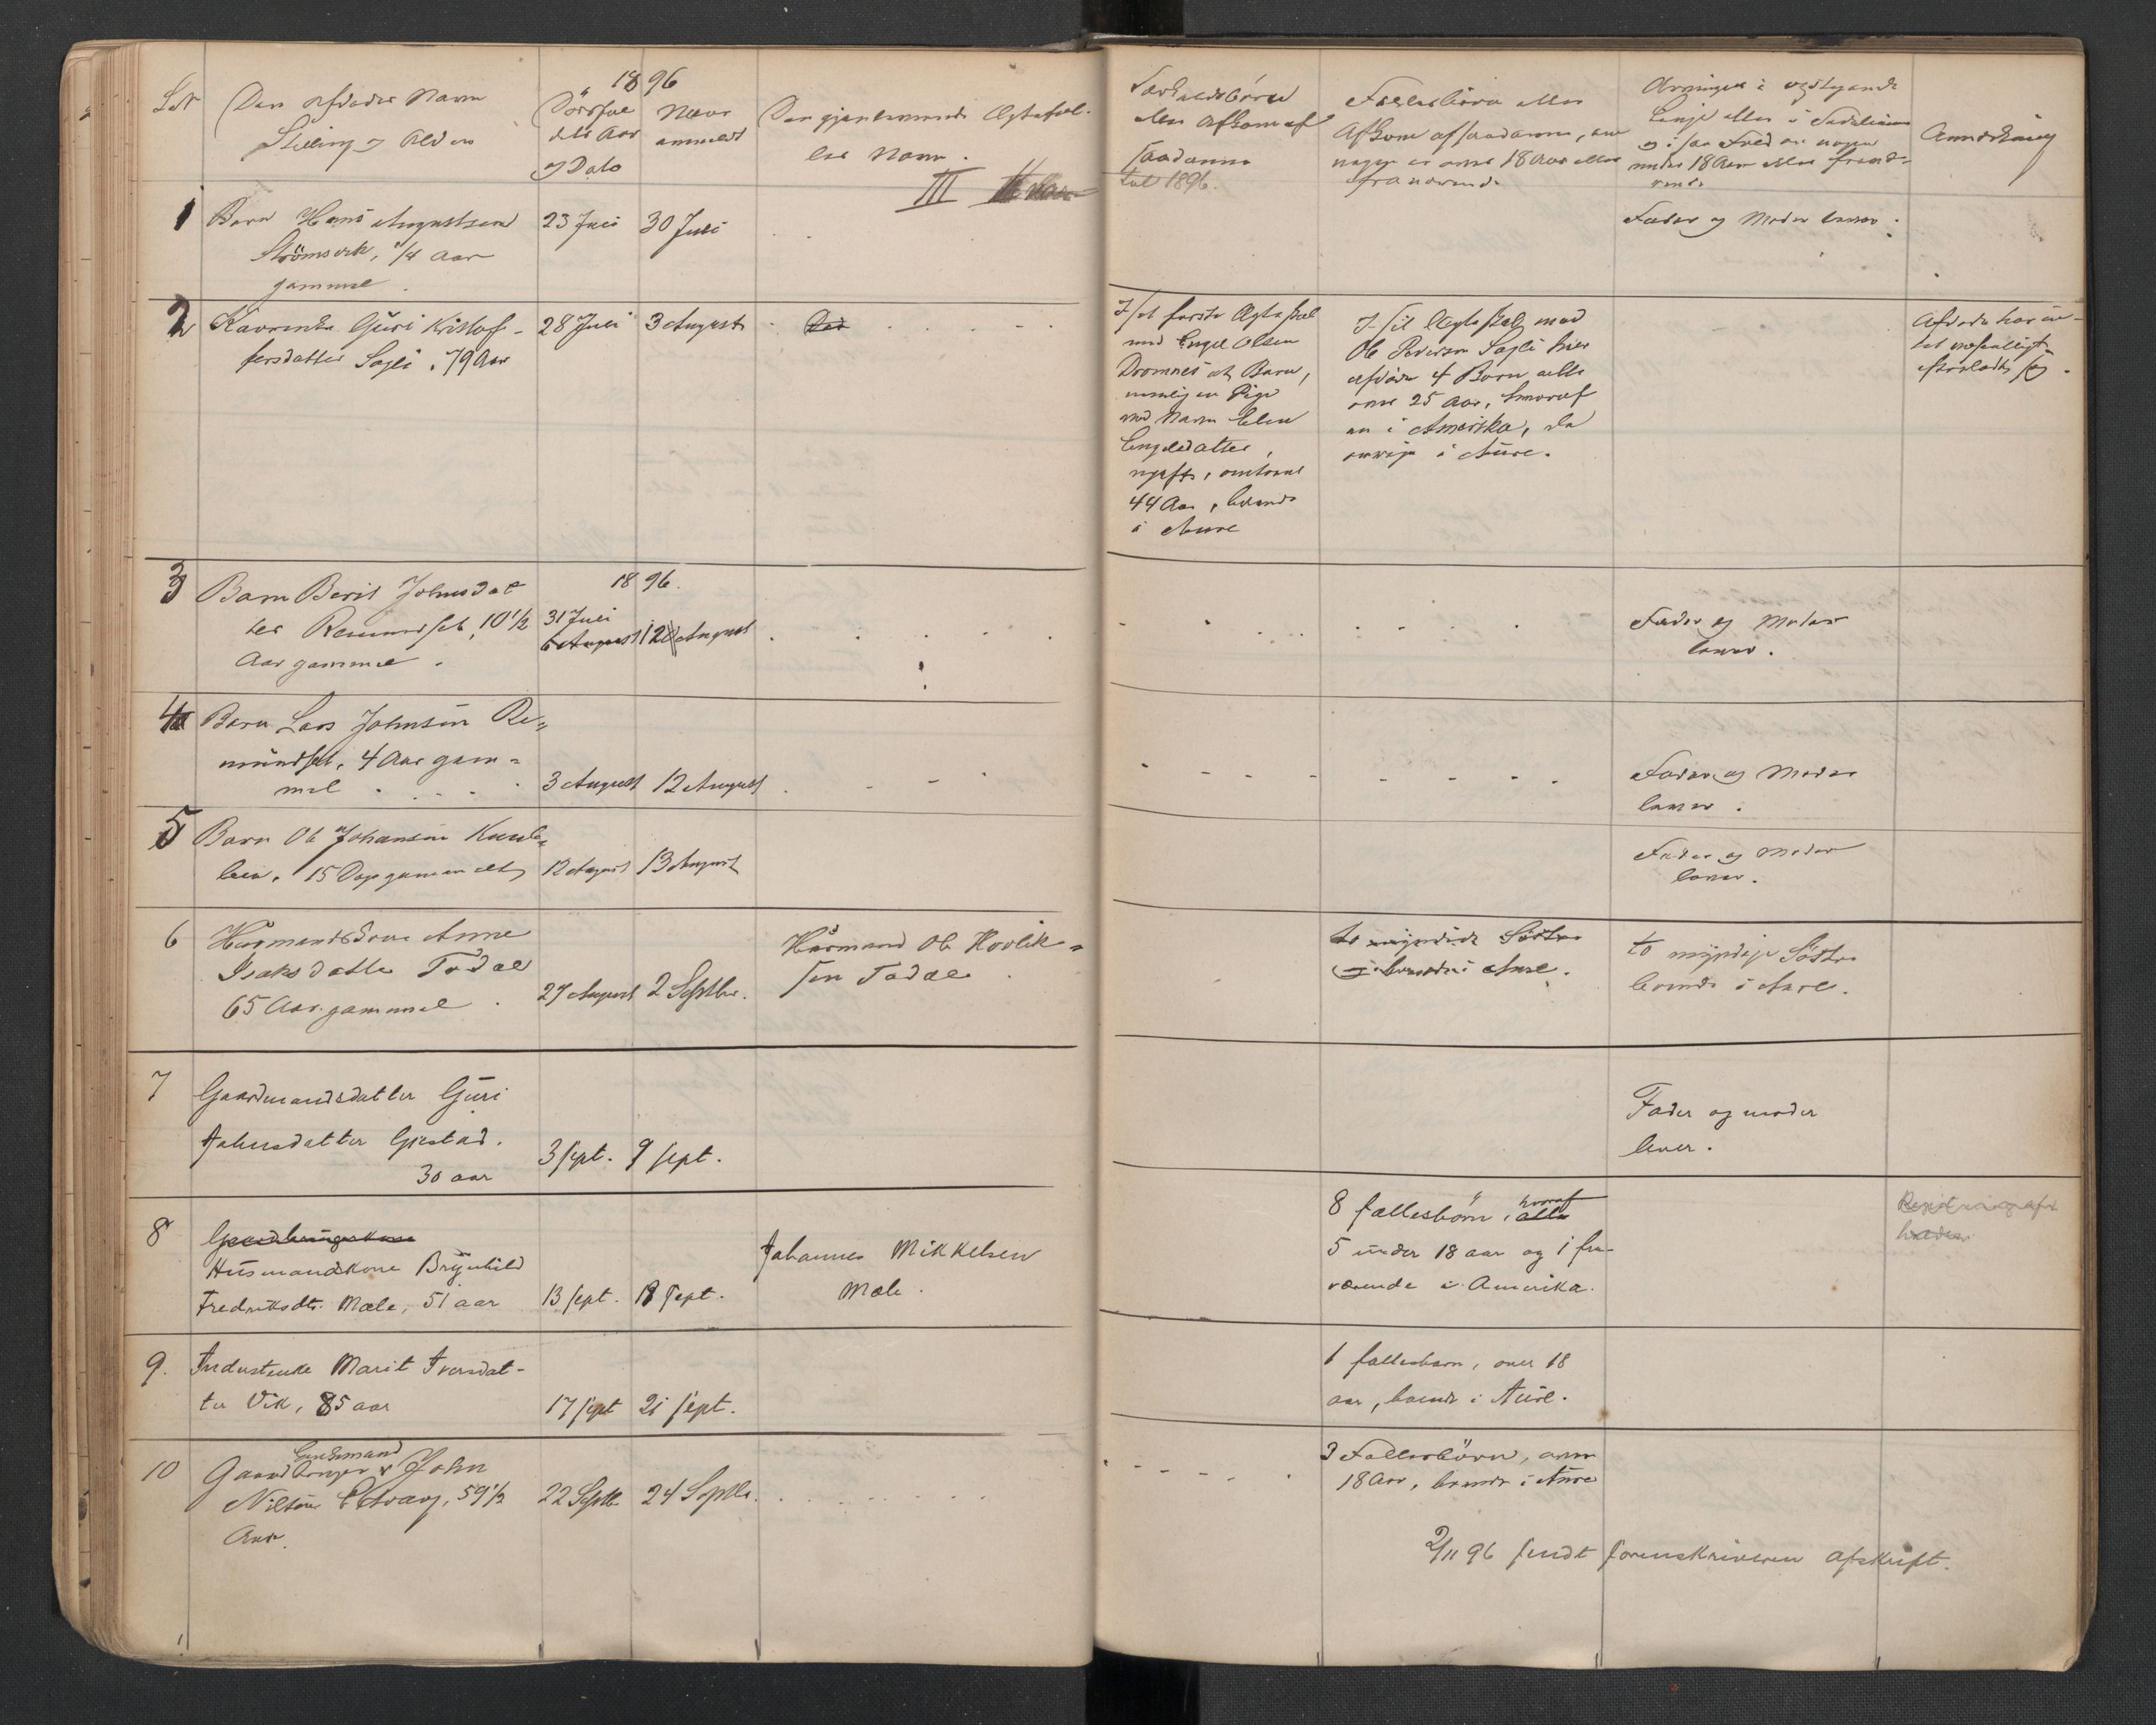 LN
Den afdødes Navn
Stilling og Alder
1896
Dödsfal
dets Aar
og Dato
Naar
anmeldt
Den gjenlevende Ægtefæl-
les Navn.
III
Særkuldsbörn
eller Afkom af
saadanne
tal 1896.
Fællesbörn eller
Afkom af saadanne, om
nogen er over 18 Aar eller
fraværende
Arvinger i opstigende
Linje eller i Sidelinien
og i saa Fald om nogen
under 18 Aar eller fravæ-
rende
Anmærkning
1
Barn Hans Augustsen
Strömsvik, 1/4 Aar
gammel.
23 Juli
30 Juli
Fader og Moder lever.
2
Kaarenke Guri Kristof-
fersdatter Sagli, 79 Aar
28 Juli
3 August
Död
I sit første Ægteskab
med Engel Olsen
Dromnes et Barn,
nemlig en Pige
med Navn Elen
Engelsdatter,
ugift, omtrent
44 Aar, boende
i Aure
I sit Ægteskab med
Ole Pedersen Sagli har
afdøde 4 Børn alle
over 25 Aar, hvoraf
en i Amerika, de
øvrige i Aure.
Afdøde har in-
tet
efterladt sig.
3
Barn Berit Johnsdat
ter Remmedset, 10 1/2
Aar gammel.
1896.
31 Juli
6 August
12 August
Fader og Moder
lever.
4
Barn Lars Johnsen Re-
mmedset, 4 Aar gam-
mel
3 August
12 August
Fader og Moder
lever.
5
Barn Ole Johansen Kuul-
lien, 15 Dage gammelt
12 August
13 August
Fader og Moder
lever.
6
Husmandskone Anne
Isaksdatter Todal
65 Aar gammel.
27 August
2 Septbr.
Husmand Ole Hovlik-
sen Todal.
to myndige Söstre
boende i Aure.
to myndige Söstre
boende i Aure.
7
Gaardmandsdatter Guri
Johnsdatter Gjestad.
30 aar
3 sept.
9 sept.
Fader og moder
lever.
8
Gaardbrugerkone
Husmandskone Brynhild
Fredriksdtr. Mæle, 51 aar
13 sept.
18 sept.
Johannes Mikkelsen
Mæle.
8 fællesbörn, alle
hvoraf
5 under 18 aar og 1 fra-
værende i Amerika.
9.
Inderstenke Marit Iversdat-
ter Vik, 85 aar
17 sept
21 sept.
1 fællesbarn, over 18
aar, boende i Aure.
10
Enkemand
Gaardbruger & John
Nilsen Ertvaag, 59 1/2
Aar.
22 Septbr
24 Septbr.
3 Fællesbörn, over
18 Aar, boende i Aure
2/11 96 sendt sorenskriveren afskrift.